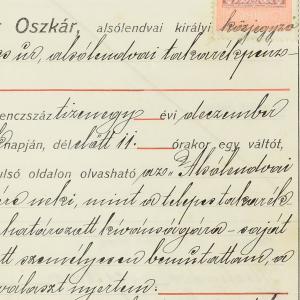 Oszkár, alsólendvai királyi közjegyző
úr, alsólendvai takarékpénz-
enczszáz tizenegy évi deczember
napján, délelőtt 11. órakor egy váltót,
ulsó oldalon olvasható az "Alsólendvai
neki, mint a telepes takarék
határozott kívánságára - saját
tt személyesen bemutattam, a
választ nyertem: